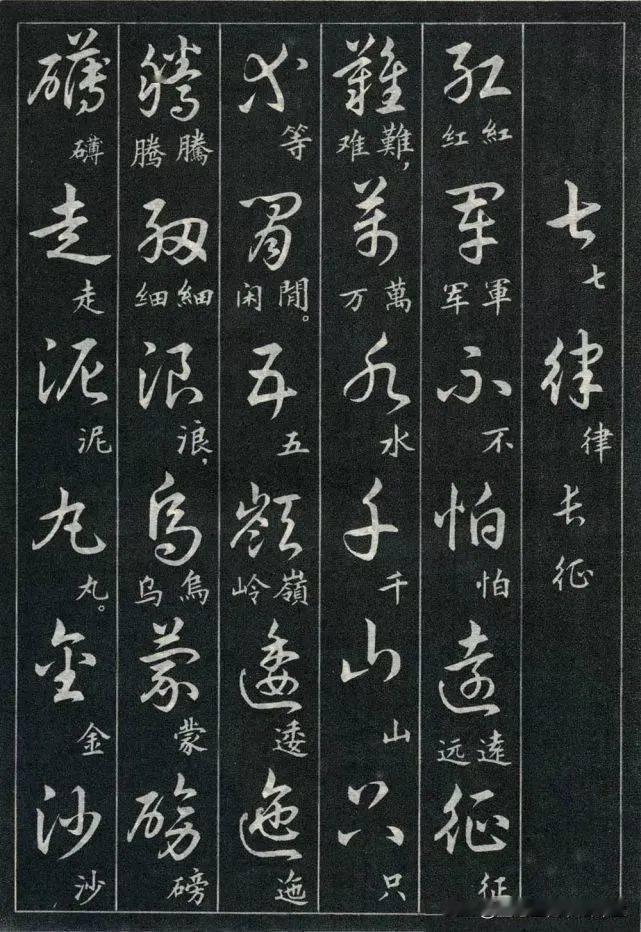 七七律律长征
紅紅红軍軍军不不怕怕遠遠远征征
難難，难萬萬万水水千千山山只只
等等閒閒。闲五五嶺嶺岭逶逶迤迤
騰騰腾細細细浪浪，烏烏乌蒙蒙磅磅
礴礴走走泥泥丸丸。金金沙沙